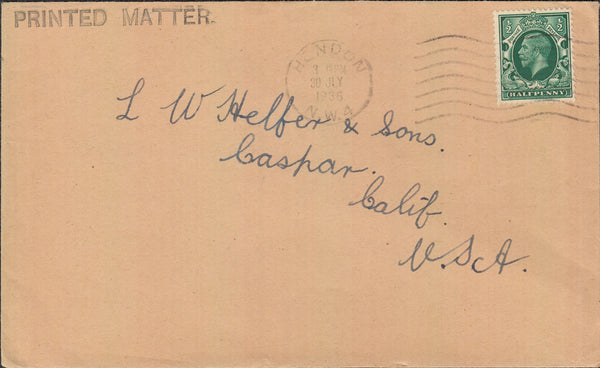 PRINTED MATTER.
½ ½
HALFPENNY
HENDON
30 JLY
1936
N.W.4
L W Helfer & Sons.
Caspar.
Calif.
U.S.A.